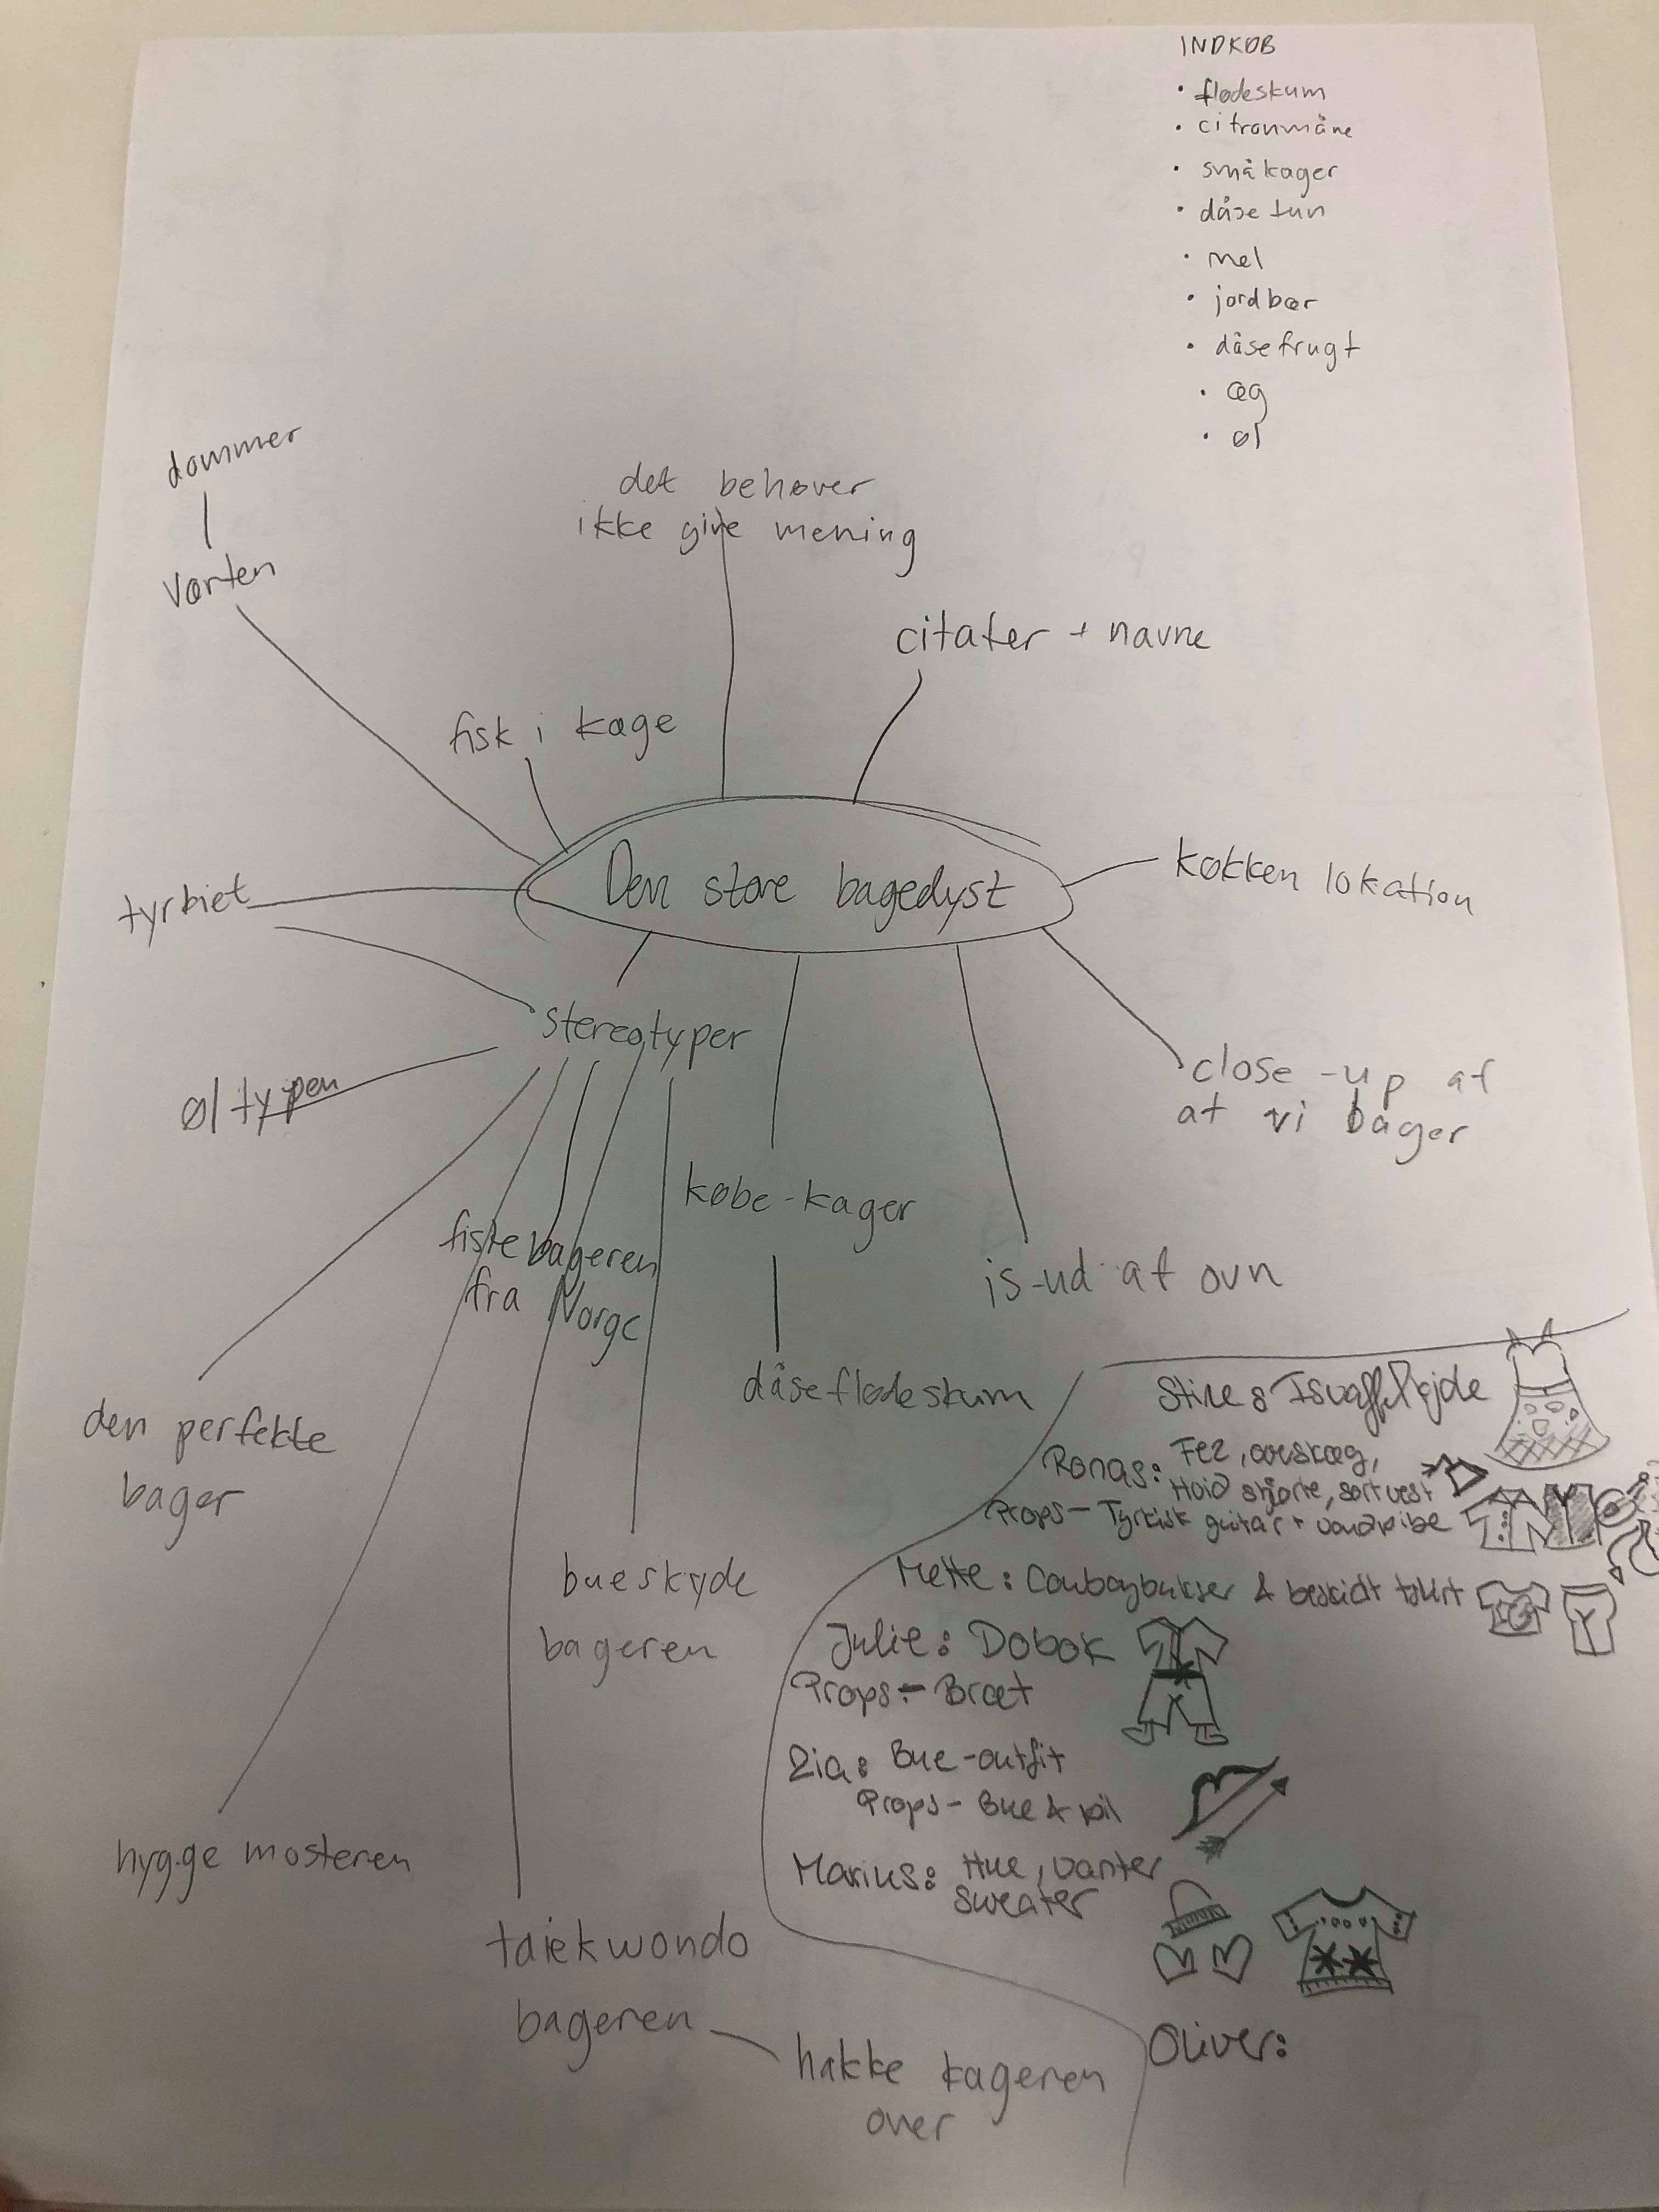 INDKØB
• flødeskum
• citronmåne
• småkager
• dåse tun
• mel
• jordbær
• dåsefrugt
• æg
• øl
dommer
Værten
det behøver
ikke give mening
citater + navne
fisk i kage
Den store bagedyst
køkken lokation
tyrkiet
stereotyper
øl typen
close-up af
at vi bager
købe-kager
fiskebageren
fra Norge
is-ud af ovn
dåseflødeskum
den perfekte
bager
bueskyde
bageren
hygge mosteren
taiekwondo
bageren
hakke kageren
over
Stine: Isvaffel
Fez, overskæg,
Hvid skjorte, sort vest
Props- Tyrkisk guitar + vandpibe
Mette: Cowboybukser & beskidt tshirt
Julie: Dobok
Props- Bræt
Zia: Bue-outfit
Props- Bue & pil
Marius: Hue, vanter
sweater
Oliver: